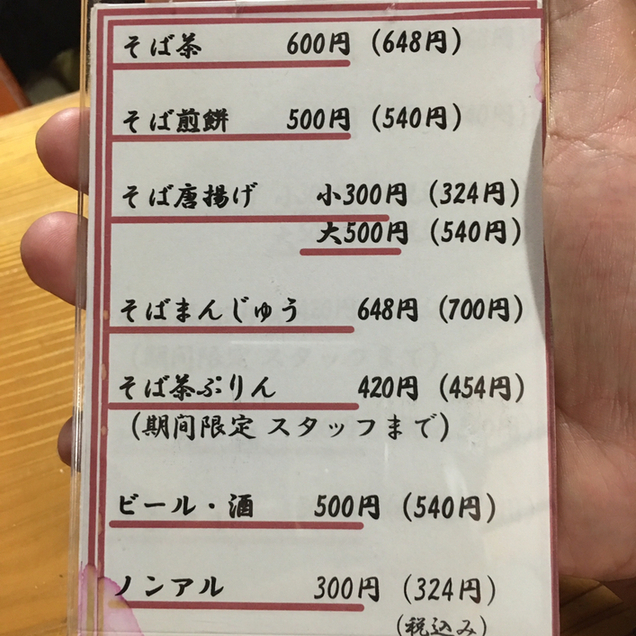 そば茶 600円 (648円)
そば煎餅 500円 (540円)
そば唐揚げ 小300円 (324円)
大500円 (540円)
そばまんじゅう 648円 (700円)
そば茶ぷりん 420円 (454円)
(期間限定 スタッフまで)
ビール・酒 500円 (540円)
ノンアル 300円 (324円)
(税込み)